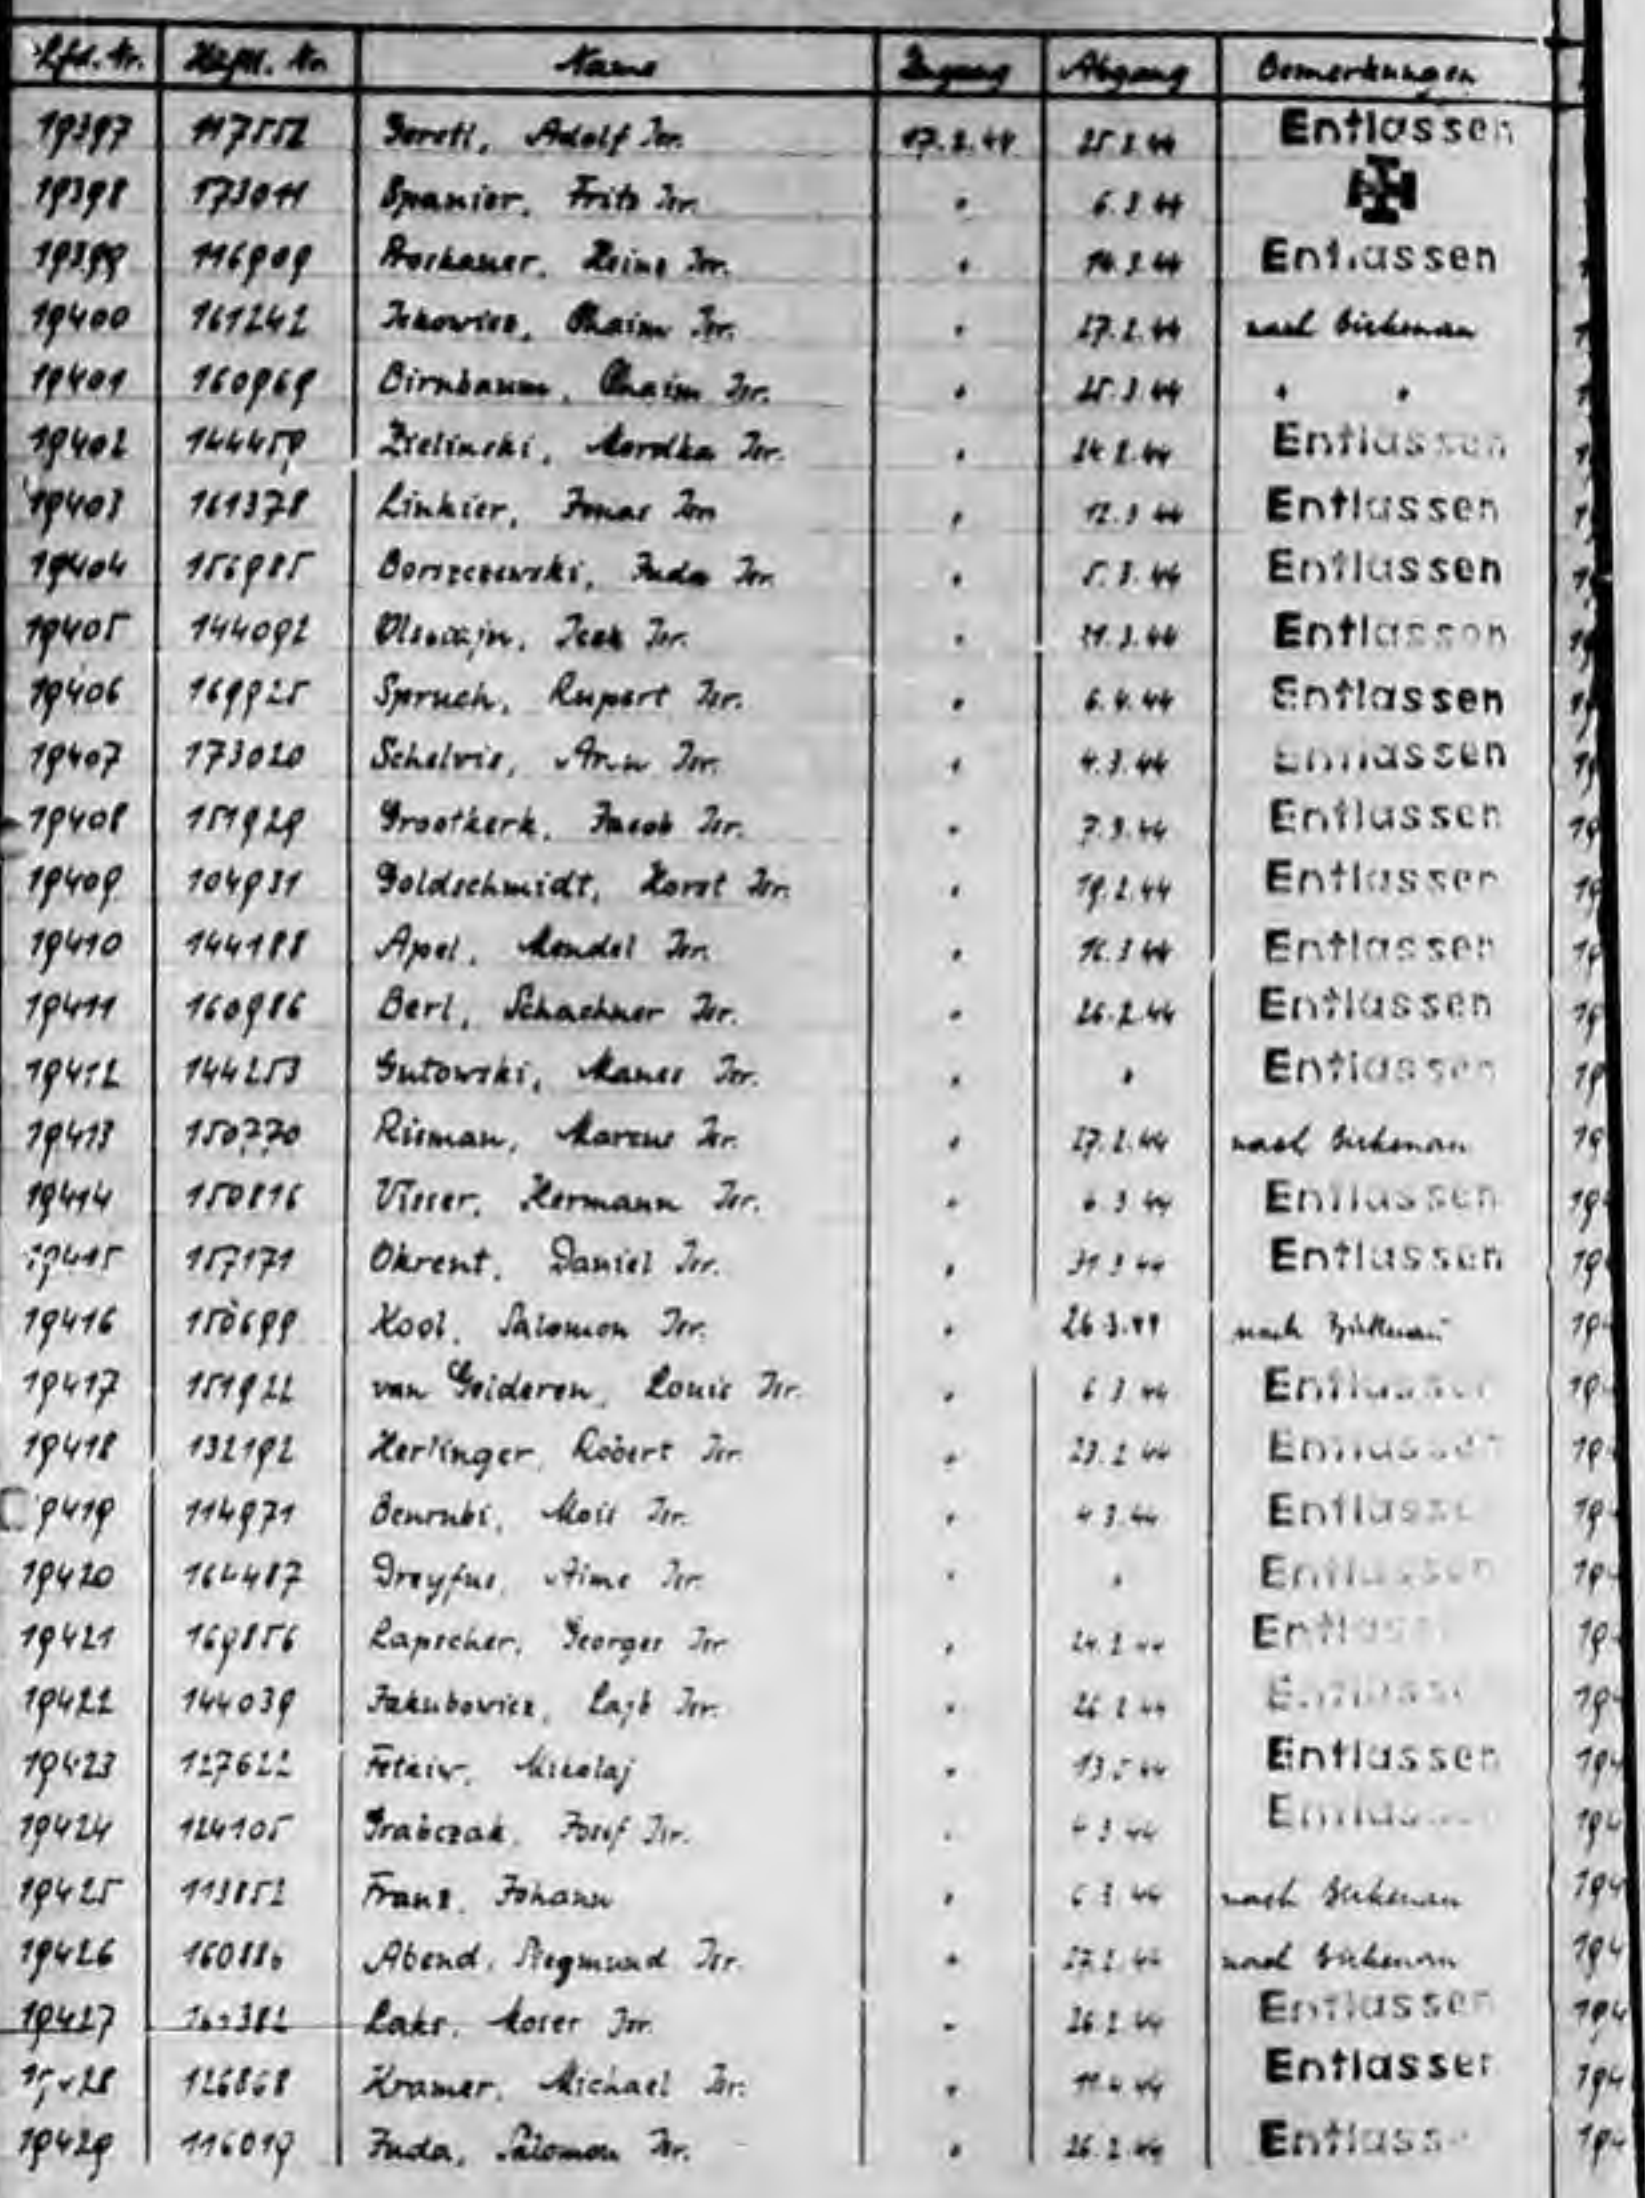 Lfd. Nr. Häftl. Nr. Name Zugang Abgang Bemerkungen
19397 117552 Gerstl, Adolf Isr. 17.2.44 25.2.44 Entlassen
19398 173011 Spanier, Fritz Isr. " 6.3.44
19399 116909 Proskauer, Heinz Isr. " 14.3.44 Entlassen
19400 161242 Ickowicz, Chaim Isr. " 27.2.44 nach Birkenau
19401 160969 Birnbaum, Chaim Isr. " 25.3.44 " "
19402 144459 Zielinski, Mordka Isr. " 24.2.44 Entlassen
19403 161378 Linkier, Jonas Isr. " 12.3.44 Entlassen
19404 156985 Borszczewski, Juda Isr. " 5.3.44 Entlassen
19405 144092 Icek Isr. " 3.44 Entlassen
19406 169925 Spruch, Rupert Isr. " 6.4.44 Entlassen
19407 173020 Schelvis, Isr. " 4.3.44 Entlassen
19408 151929 Grootkerk, Jacob Isr. " 7.3.44 Entlassen
19409 104931 Goldschmidt, Horst Isr. " 19.2.44 Entlassen
19410 144188 Apel, Mendel Isr. " 16.3.44 Entlassen
19411 160986 Berl, Schachner Isr. " 26.2.44 Entlassen
19412 144253 Gutowski, Manes Isr. " " Entlassen
19413 150770 Risman, Marcus Isr. " 27.2.44 nach Birkenau
19414 150816 Visser, Hermann Isr. " 6.3.44 Entlassen
19415 157171 Okrent, Daniel Isr. " 31.3.44 Entlassen
19416 150699 Kool, Salomon Isr. " 26.3.44 nach Birkenau
19417 151922 van Gelderen, Louis Isr. " 6.3.44 Entlassen
19418 132192 Herlinger, Robert Isr. " 23.2.44 Entlassen
19419 114971 Benrubi, Mois Isr. " 4.3.44 Entlassen
19420 164487 Dreyfus, Aime Isr. " " Entlassen
19421 169856 Rapscher, Georges Isr. " 24.2.44 Entlassen
19422 144039 Jakubowicz, Lajb Isr. " 26.2.44 Entlassen
19423 127622 Mikolaj " 13.5.44 Entlassen
19424 124105 Grabczak, Josef Isr. " 4.3.44 Entlassen
19425 113852 Franz, Johann " 6.3.44 nach Birkenau
19426 160886 Abend, Siegmund Isr. " 27.2.44 nach Birkenau
19427 Laks, Moser Isr. " 26.2.44 Entlassen
19428 126868 Kramer, Michael Isr. " 11.4.44 Entlassen
19429 116019 Juda, Salomon Isr. " 26.2.44 Entlassen